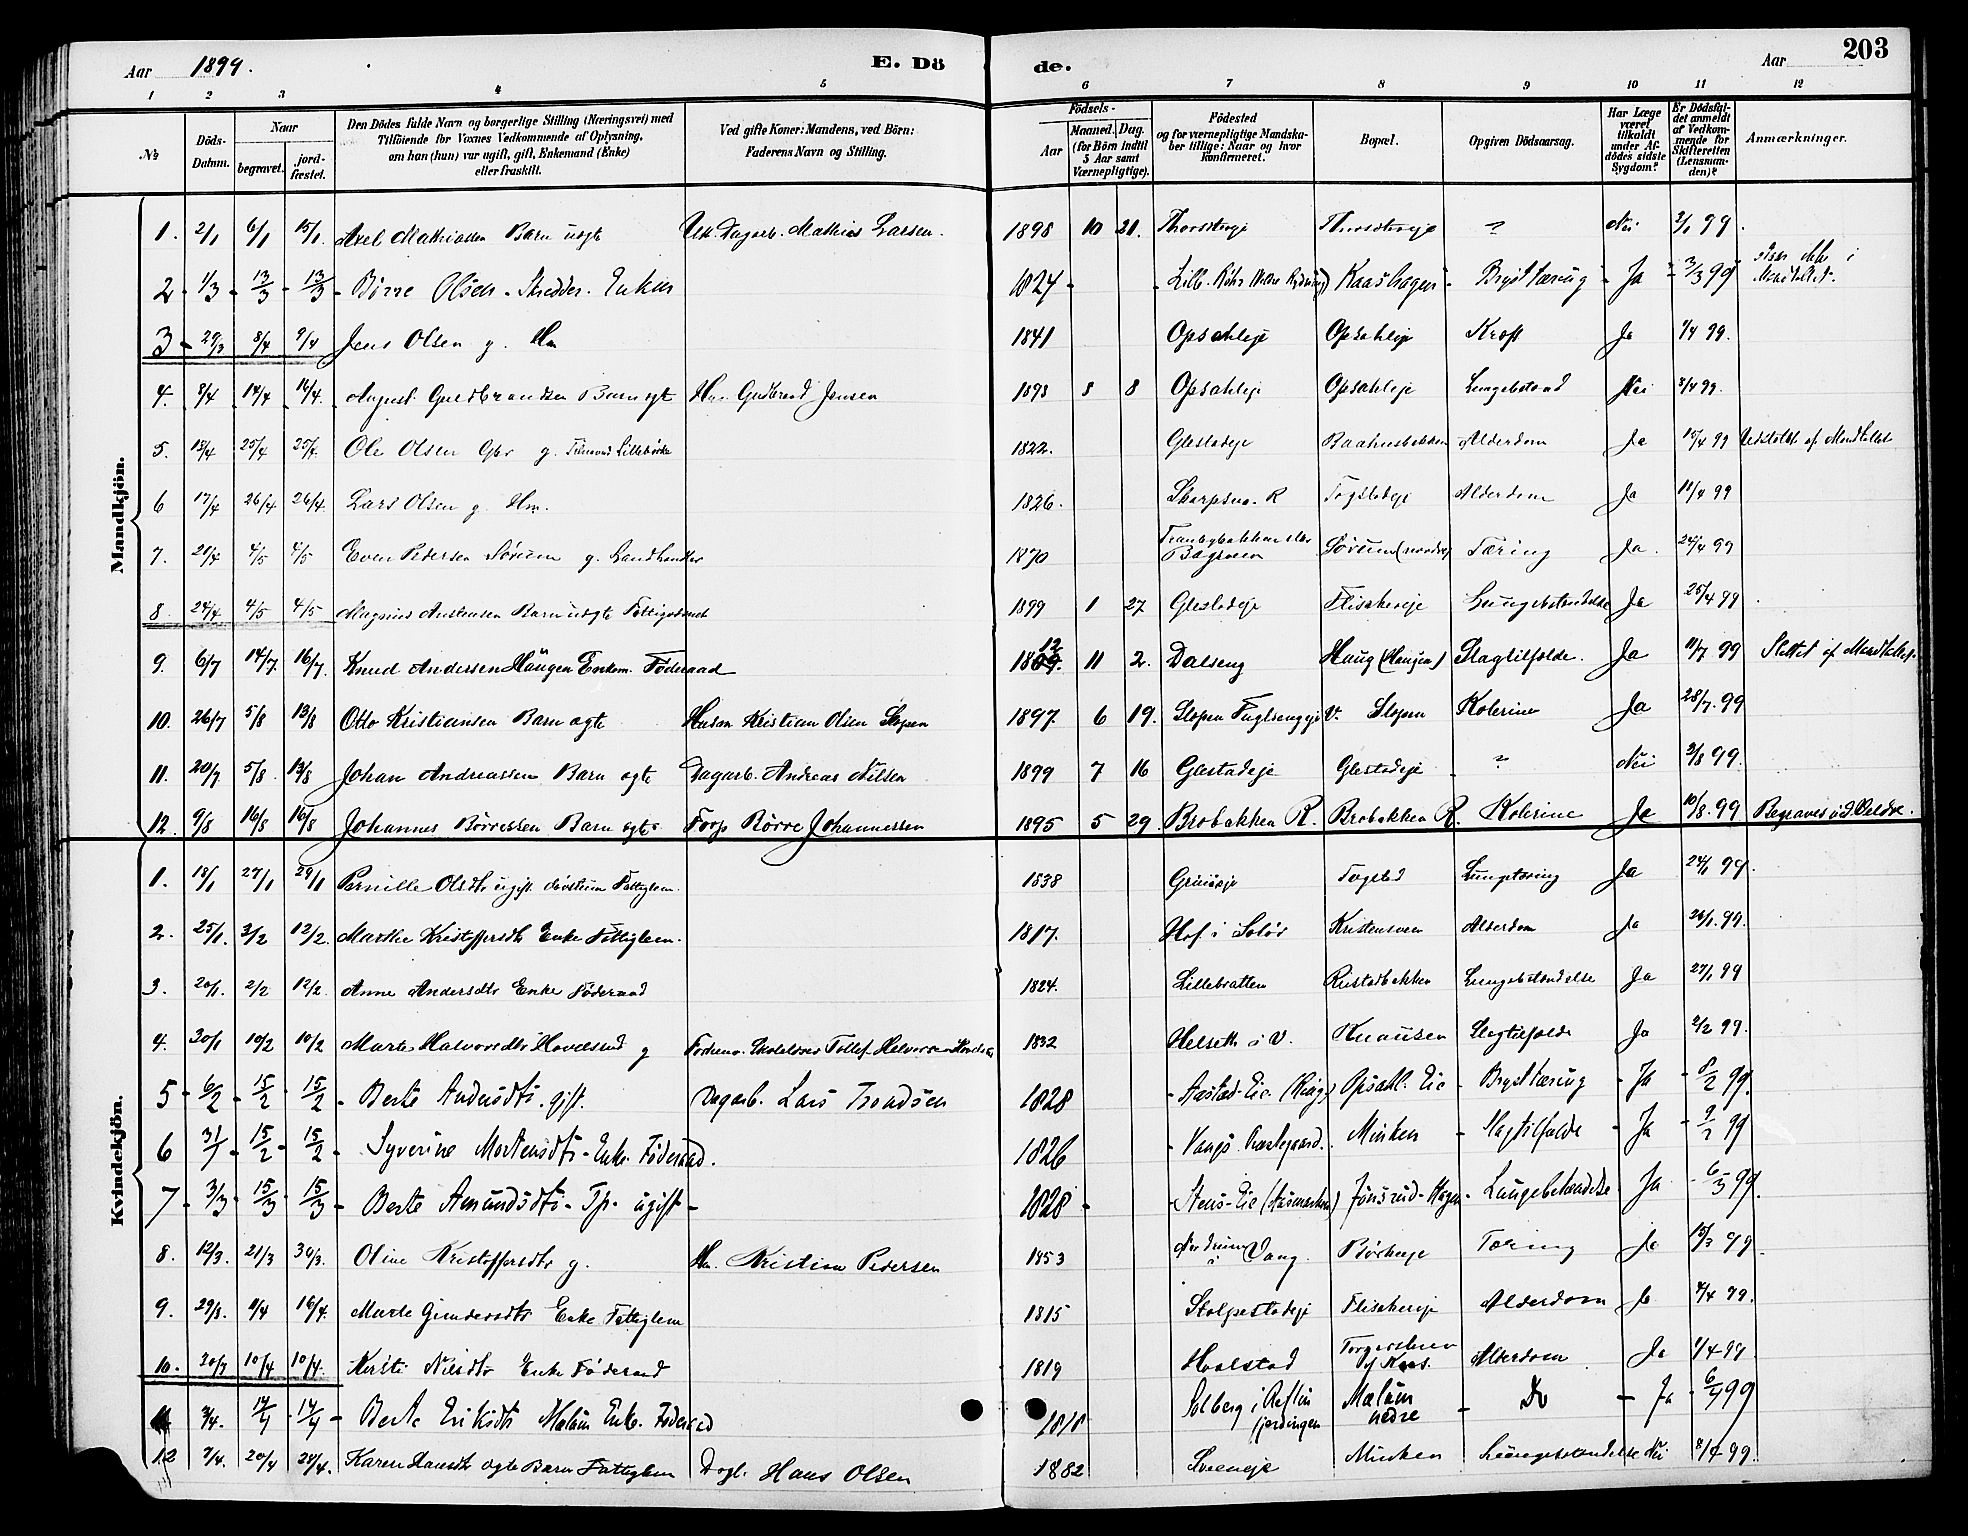 Aar 1899. E. Dö de. Aar 203
1 2 3 4 5 6 7 8 9 10 11 12
№ Döds-Datum. Naar begravet. jord-fæstet. Den Dödes fulde Navn og borgerlige Stilling (Næringsvei) med Tilföiende for Voxnes Vedkommende af Oplysning, om han (hun) var ugift, gift, Enkemand (Enke) eller fraskilt. Ved gifte Koner: Mandens, ved Börn: Faderens Navn og Stilling. Födsels- Aar Maaned. Dag. (for Börn indtil 5 Aar samt Værnepligtige). Födested og for værnepligtige Mandskaber tillige: Naar og hvor konfirmeret. Bopæl. Opgiven Dödsaarsag. Har Læge været tilkaldt under Afdödes sidste Sygdom? Er Dödsfaldet anmeldt af Vedkommende for Skifteretten (Lensmanden)? Anmærkninger.
Mandkjön.
1. 2/1 6/1 15/1 Axel Mathiassen Barn uægte Dagarb. Mathias Larsen. 1898 10 21. Thorsheje Thorshoveje ? Nei 2/1 99.
2 - 1/3 - 13/3 - 13/3 - Børre Olsen - Skredder - Enkm 1824 - Kaashagen - Brysttæring - Ja - 3/3 99
3 - 29/3 8/4 9/4 Jens Olsen g. Hm 1841 Opsahleje Opsahleje Kræft Ja 1/4 99.
4. 8/4 14/4 16/4. August Guldbrandsen Barn ægt Hm. Gudbrand Jensen 1898 8 8 Opsahleje Opsahleje Lungebetænd Nei 8/4 99.
5. 13/4 25/4 25/4. Ole Olsen Gbr g. Lillebrække 1822. Glestadeje Baahusbakken Alderdom Ja 15/4 99 Udslettet af Mandtallet
6 17/4 26/4 26/4. Lars Olsen g. Hm. 1826. R Fogstadeje Alderdom Ja 11/4 99
7. 21/4 4/5 4/5 Even Pedersen Sørum g. Landhandler 1870 Tranbybakken Sørum (nordre) Tæring Ja. 24/4 99
8. 24/4 4/5 4/5 Magnus Andersen Barn uægte Fattigunderst 1899 1 27 Glestadeje Flisakereje Lungebetændelse Ja 25/4 99
9. 6/7 14/7. 16/7. Knud Andersen Haugen Enkem. Føderaad 1812 11 2. Dalseng Haug (Haugen) Slagtilfælde. Ja 11/7 99 Slettet af Mandtallet.
10. 26/7 5/8 13/8 Otto Kristiansen Barn ægte Husm Kristian Olsen Slopen 1897 6 19. Slopen Fuglsengeje V. Slopen Kolerine Ja 28/7. 99
11. 20/7 5/8. 13/8 Johan Andreassen Barn ægte Dagarb. Andreas Nilsen 1899 7 16 Glestadeje Glestadeje ? Nei 2/8 99.
12. 9/8 16/8 16/8 Johannes Börresen Barn ægte Forp Börre Johannessen 1895 5 29. Brobakken R. Brobakken R. Kolerine Ja 10/8. 99 Begraves v. Veldre.
Kvindekjön.
1. 18/1 27/1 29/1 Pernille Olsdtr ugift Fattiglem. 1838 Grimseje Fogstad Lungetæring Ja 24/1 99.
2. 25/1. 3/2 12/2. Marthe Kristoffersdtr Enke Fattiglem. 1817. Hof i Solör Kristensveen Alderdom Ja 26/1. 99.
3. 20/1. 2/2 12/2. Anne Andersdtr Enke Føderaad 1824. Lillebratten Rustadbakken Lungebetændelse Ja 27/1 99
4. 30/1 10/2 10/2 Marte Halvorsdtr Hovelsrud g Skolelærer Tollef Halvorsen 1832 Helseth i V. Knausen Slagtilfælde Ja 2/2 99.
5 - 6/2 - 15/2 - 15/2 - Berte Andersdtr. gift. Dagarb. Lars Trondsen 1828 - Aastad-Eie (Ring) Opsahl. Eie - Brysttæring - Ja - 8/2 99.
6 31/1 - 15/2 - 15/2 - Syverine Mortensdtr - Enke. Føderaad. 1826 - Vangs Præstegaard. - Minken - Slagtilfælde - Ja - 9/2 99
7 - 3/3 - 15/3 - 15/3 - Berte Amundsdtr - Tp. ugift - 1828 - Stens-Eie Jønsrud-Hagen - Lungebetændelse Ja - 6/3 99.
8. 12/3. 21/3 30/3. Oline Kristoffersdtr g. Hm. Kristian Pedersen 1853 Vang. Börkeeje Tæring Ja 15/3 99.
9. 29/3. 9/4 16/4. Marte Gundersdtr Enke Fattiglem 1815 Stolpestadeje Flisakereje Alderdom Ja 4/4 99.
10. 30/3 10/4 10/4. Kirsti Nilsdtr Enke Føderaad 1819 Haalstad Torgerstuen Alderdom. Ja 1/4 99
11 3/4. 17/4 - 17/4 - Berte Eriksdtr Mælum Enke. Føderaad 1818 Solberg i Mælum nedre - Do - Ja - 6/4 99
12 7/4. 20/4 20/4. Karen Hansdtr ægte Barn Fattiglem Dagl. Hans Olsen 1882 Sveeneje Minken Lungebetændelse Nei 8/4 99.